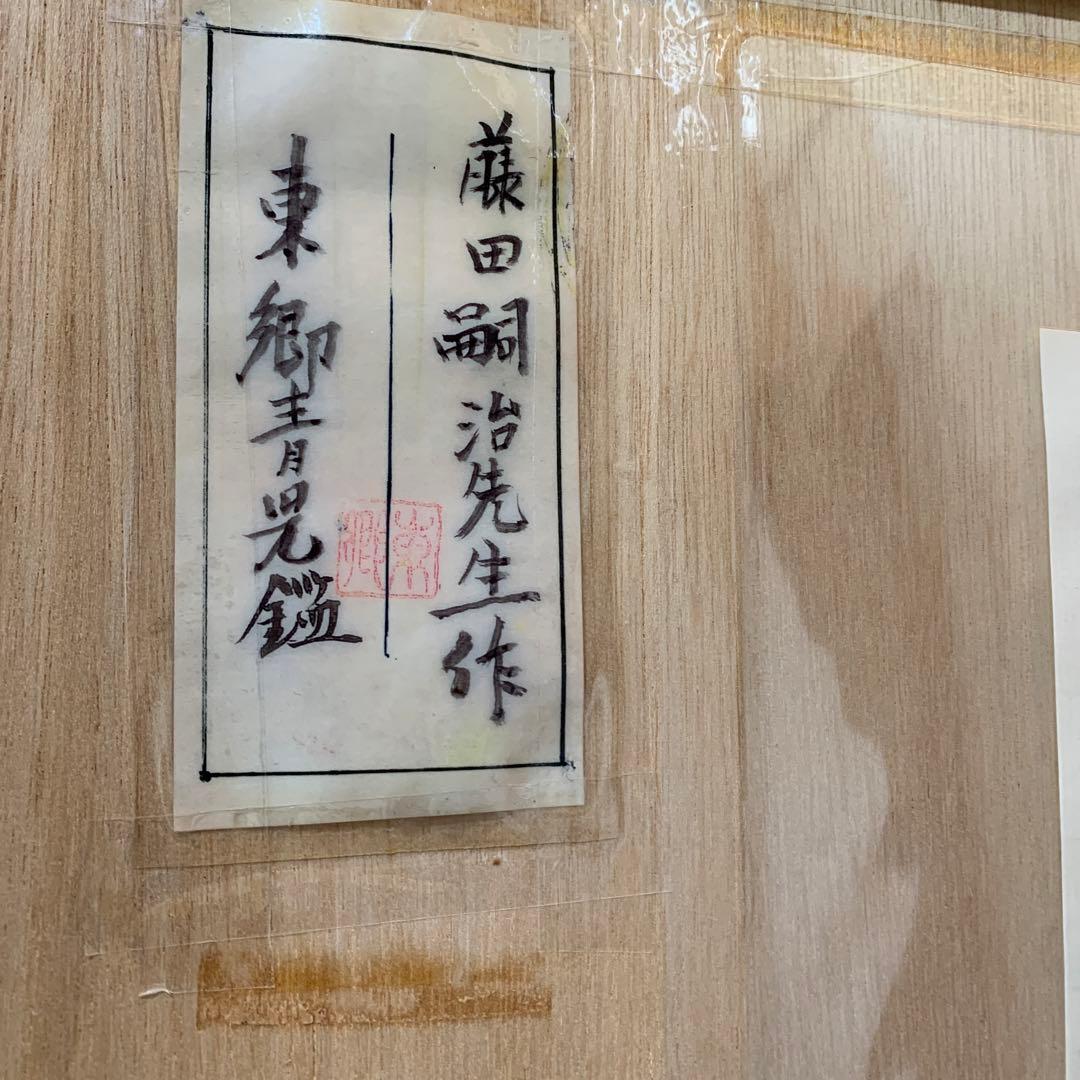 藤田嗣治先生作
東郷青児鑑
東郷